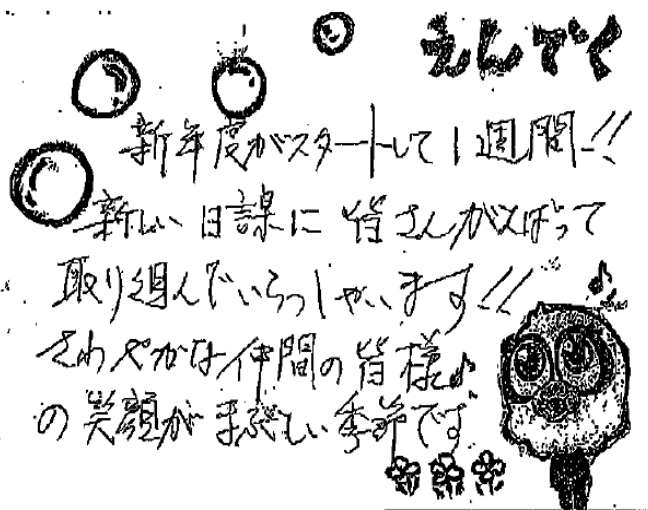 えんでく
新年度がスタートして1週間!!
新しい日課に皆さんがんばって
取り組んでいらっしゃいます!!
さわやかな仲間の皆様♪
の笑顔がまぶしい季節です